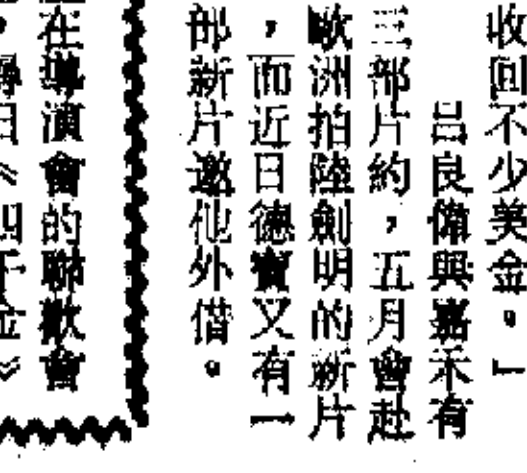 收回不少美金。」
呂良偉與嘉禾有
三部片約，五月會赴
歐洲拍陸劍明的新片
，而近日德寶又有一
部新片邀他外借。
在導演會的聯歡會
，尋日《四千金》